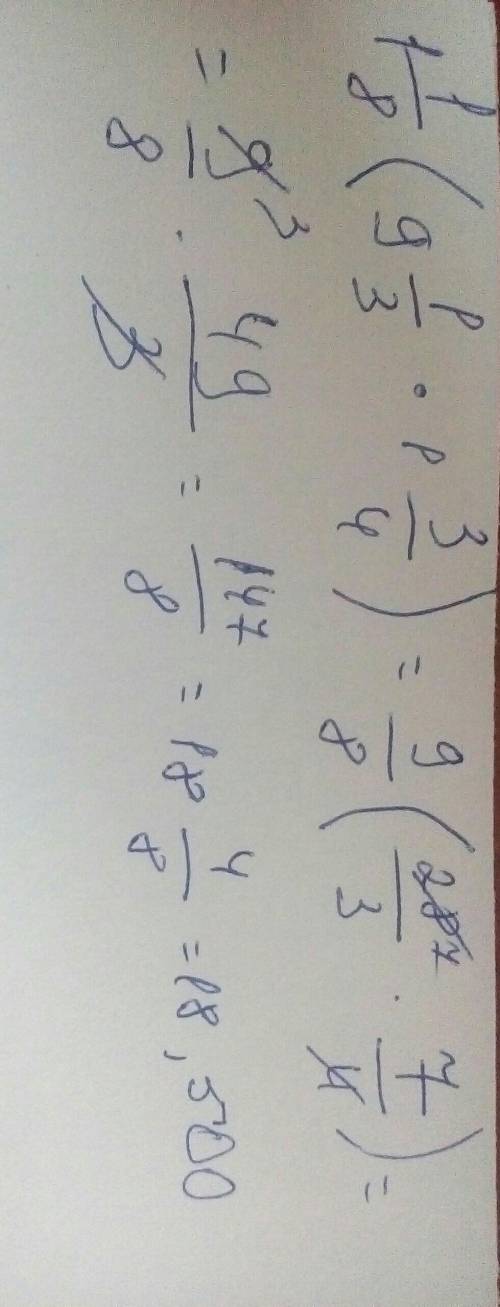 1 1/8 ( 9 1/3 · 1 3/4 ) = 9/8 ( 28 7/3 · 7/4 ) =
= 9 3/8 · 49/3 = 147/8 = 18 4/8 = 18,500